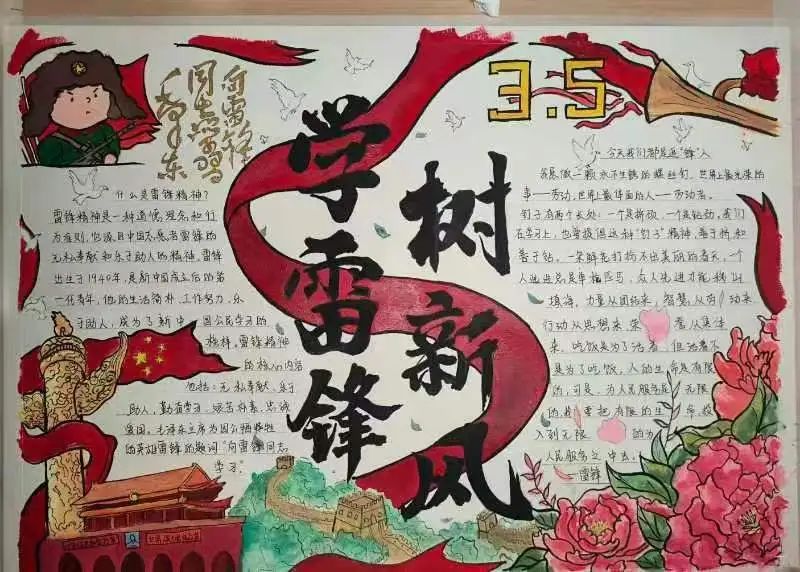 向雷锋
同志学习
毛泽东
3.5
学雷锋
树新风
什么是雷锋精神?
雷锋精神是一种道德理念和行
为准则,它源自中国志愿者雷锋的
无私奉献和乐于助人的精神。雷锋
出生于1940年,是新中国成立后的第
一代青年,他的生活简朴,工作努力,乐
于助人,成为了新中国公民学习的
榜样。雷锋精神
的核心内容
包括:无私奉献、乐于
助人、勤奋学习、艰苦朴素、忠诚
爱国,毛泽东主席为因公牺牲
的英雄雷锋的题词“向雷锋同志
学习”
今天我们都是追“锋”人
我愿做一颗永不生锈的螺丝钉,世界上最光荣的
事——劳动,世界上最体面的人——劳动者。
钉子有两个长处:一个是挤劲,一个是钻劲,我们
在学习上,也要提倡这种“钉子”精神,善于挤和
善于钻,一朵鲜花打扮不出美丽的春天,一个
人先进总是单枪匹马,众人先进才能移山
填海,力量从团结来,智慧从劳动来
行动从思想来,荣誉从集体
来,吃饭是为了活着,但活着不
是为了吃饭,人的生命是有限
的,可是,为人民服务是无限
的,我要把有限的生命,投
入到无限的为
人民服务之中去。
——雷锋